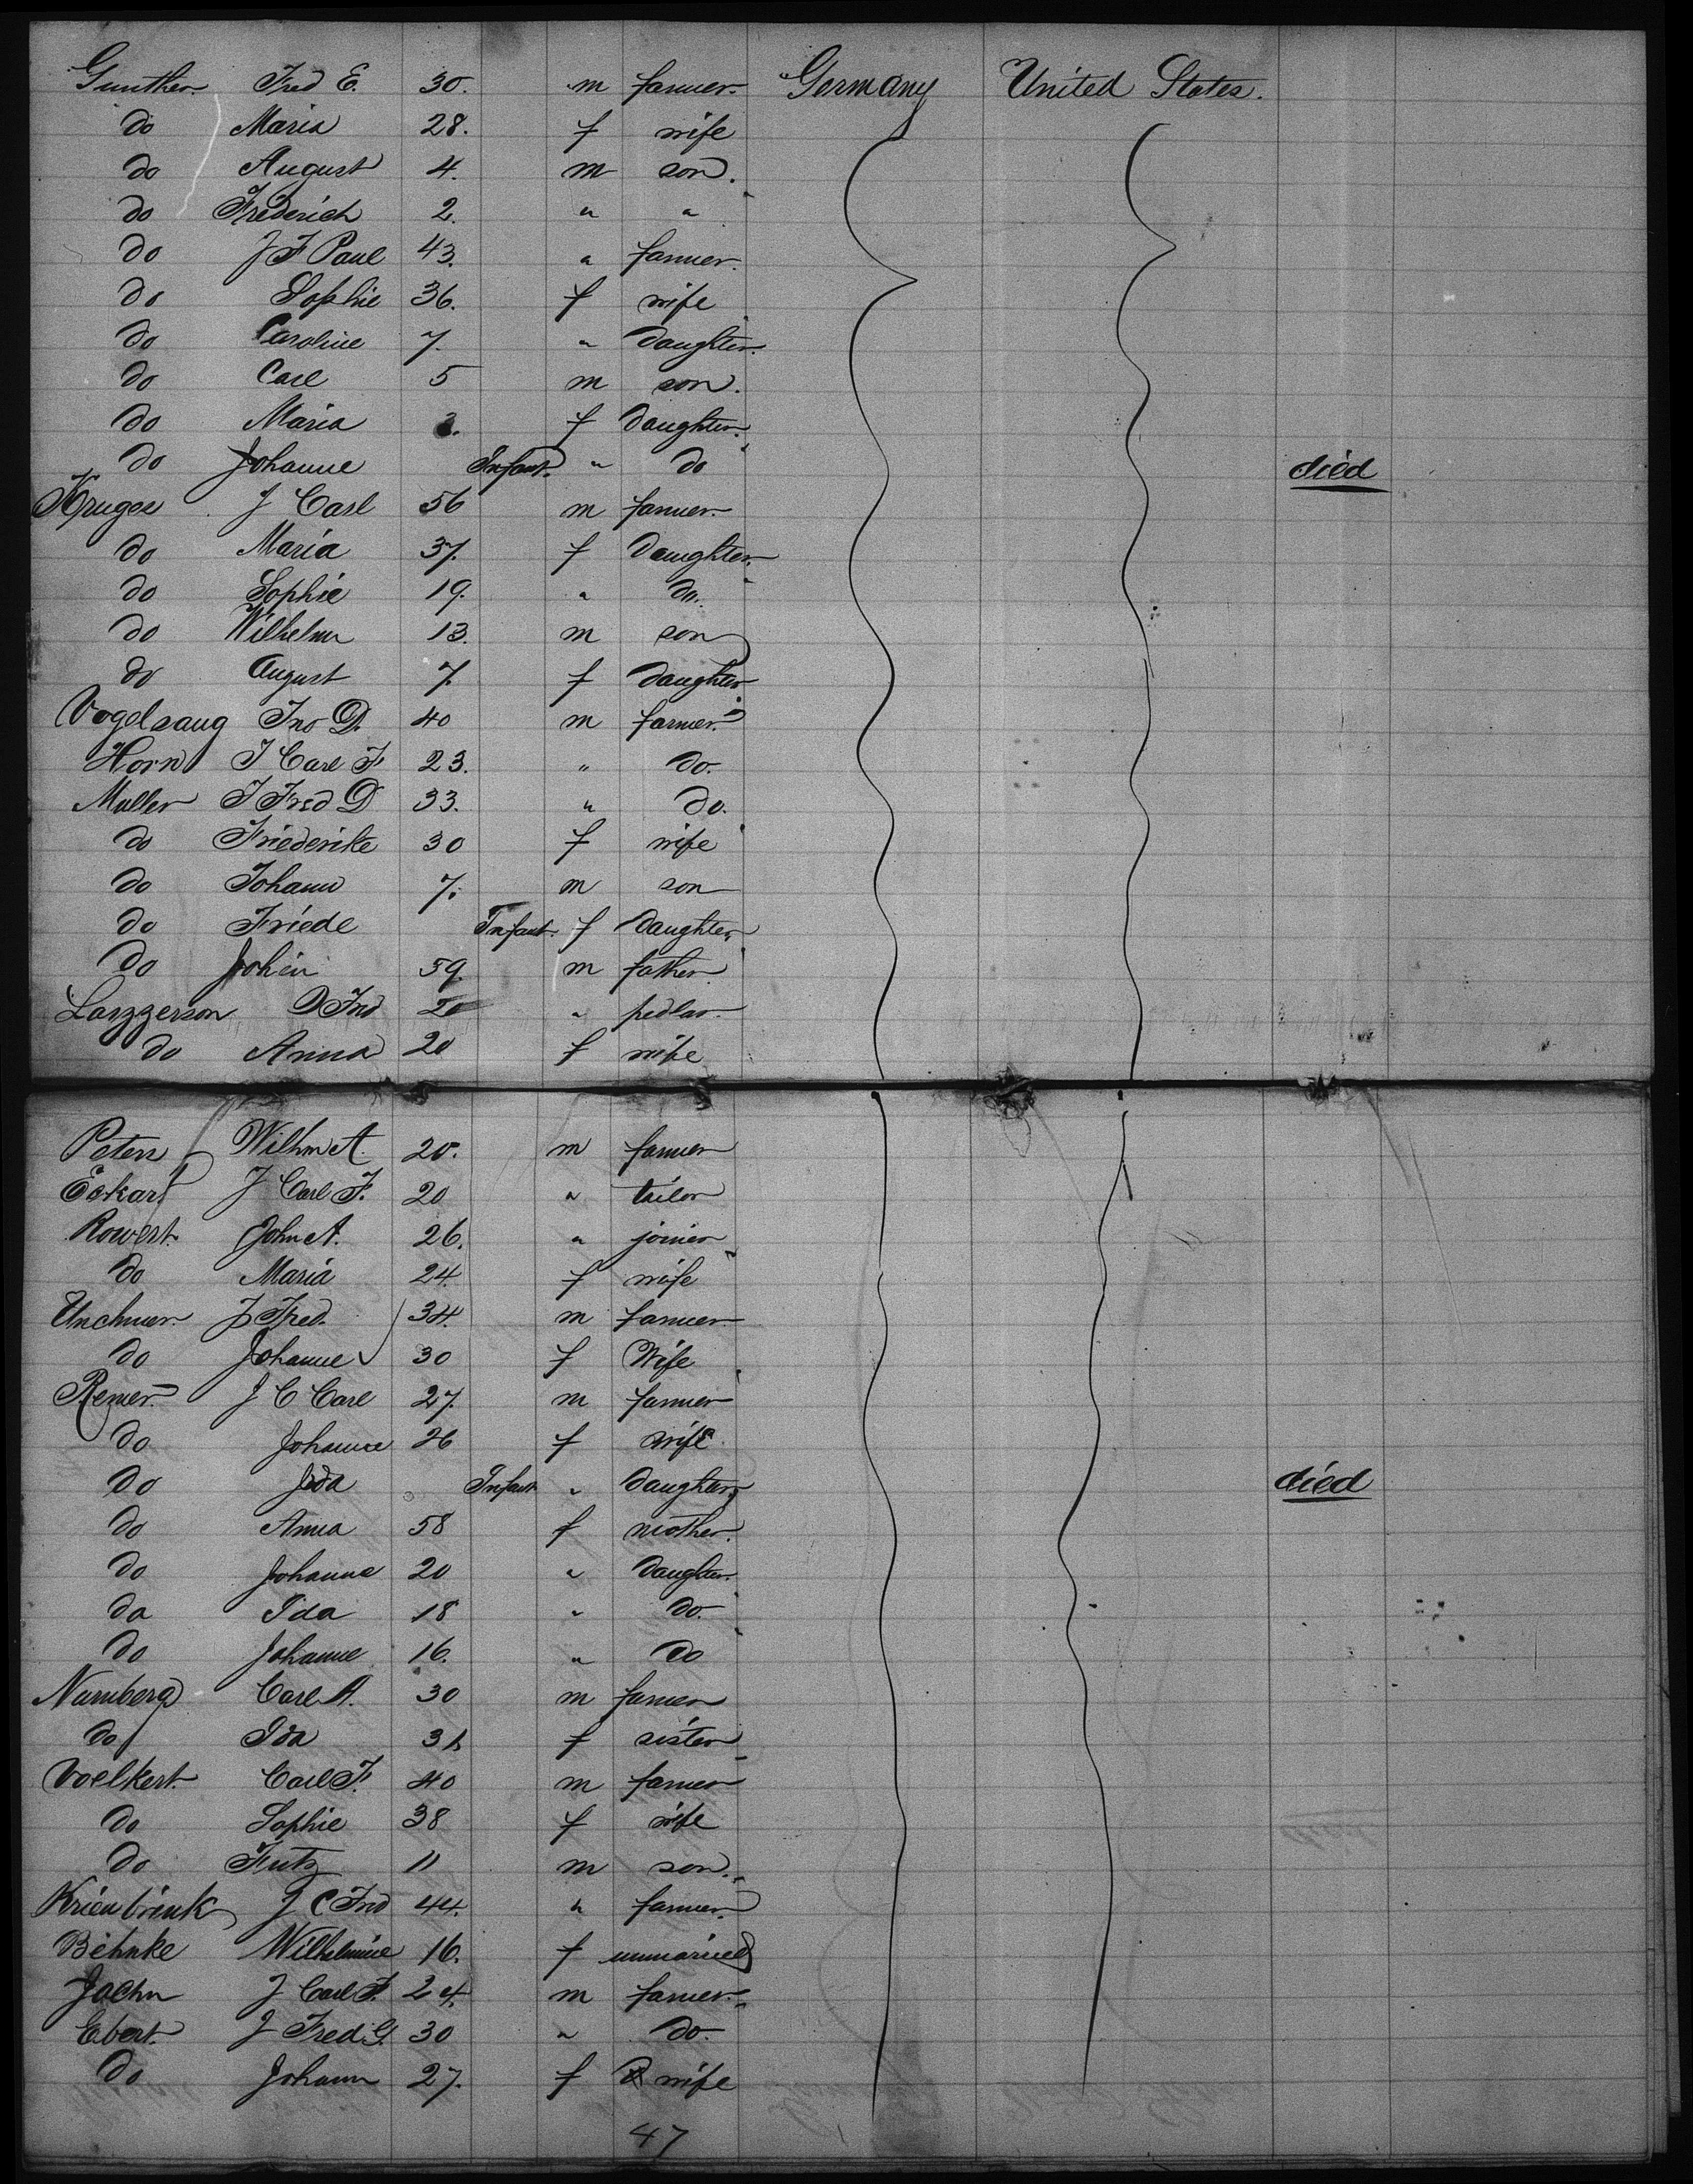 Gunther Fred E. 30. m farmer. Germany United States.
do Maria 28. f wife
do August 4. m son.
do Frederich 2. " "
do J F Paul 43. " farmer.
do Sophie 36. f wife
do Caroline 7. " daughter.
do Carl 5 m son.
do Maria 3. f daughter.
do Johanne Infant. " do died
Kruger J Carl 56 m farmer.
do Maria 37. f daughter.
do Sophie 19. " do.
do Wilhelm 13. m son
do August 7. f daughter
Vogelsang Jno D. 40 m farmer.
Horn J Carl F 23. " do.
Muller J Fred D 33. " do.
do Friederike 30 f wife
do Johann 7. m son
do Friede Infant. f daughter
do Johin 59. m father.
D Frd 20 " pedlar.
do Anna 20 f wife
Peters Wilhm A. 20. m farmer
Eckart J Carl F. 20 " tailor
Rowert. John A. 26. " joiner
do Maria 24. f wife
J Fred. 34. m farmer.
do Johanne 30 f Wife
Remer. J C Carl 27. m farmer
do Johanne 26 f wife.
do Ida Infant. " daughter, died
do Anna 58 f mother.
do Johanne 20 " daughter.
do Ida 18 " do.
do Johanne 16. " do
Nurnberg Carl A. 30 m farmer
do Ida 31 f sister
Voelkert. Carl F. 40 m farmer
do Sophie 38 f wife
do Fritz 11 m son.
Krienbrink J C Frd 44. " farmer.
Behnke Wilhelmine 16. f unmarried
Jachn J Carl F. 24. m farmer.
Ebert. J Fred. G. 30 " do.
do Johann 27. f wife
47